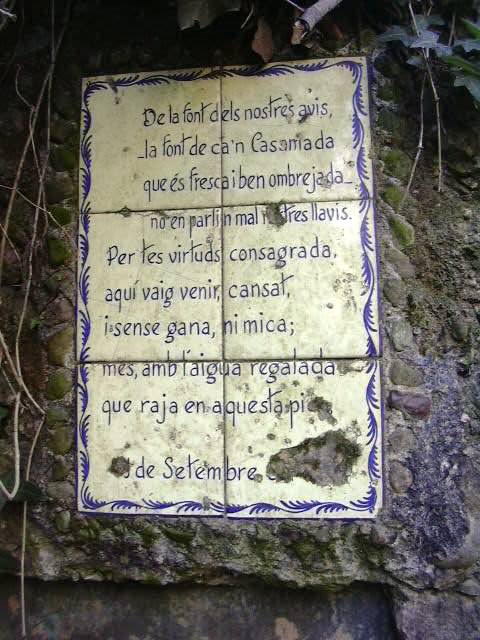 De la font dels nostres avis,
_la font de ca'n Casamada
que és fresca i ben ombrejada_
no en partin mal nostres llavis.
Per tes virtuds consagrada,
aquí vaig venir, cansat,
i sense gana, ni mica;
més, amb l'aigua regalada
que raja en aquesta
de Setembre